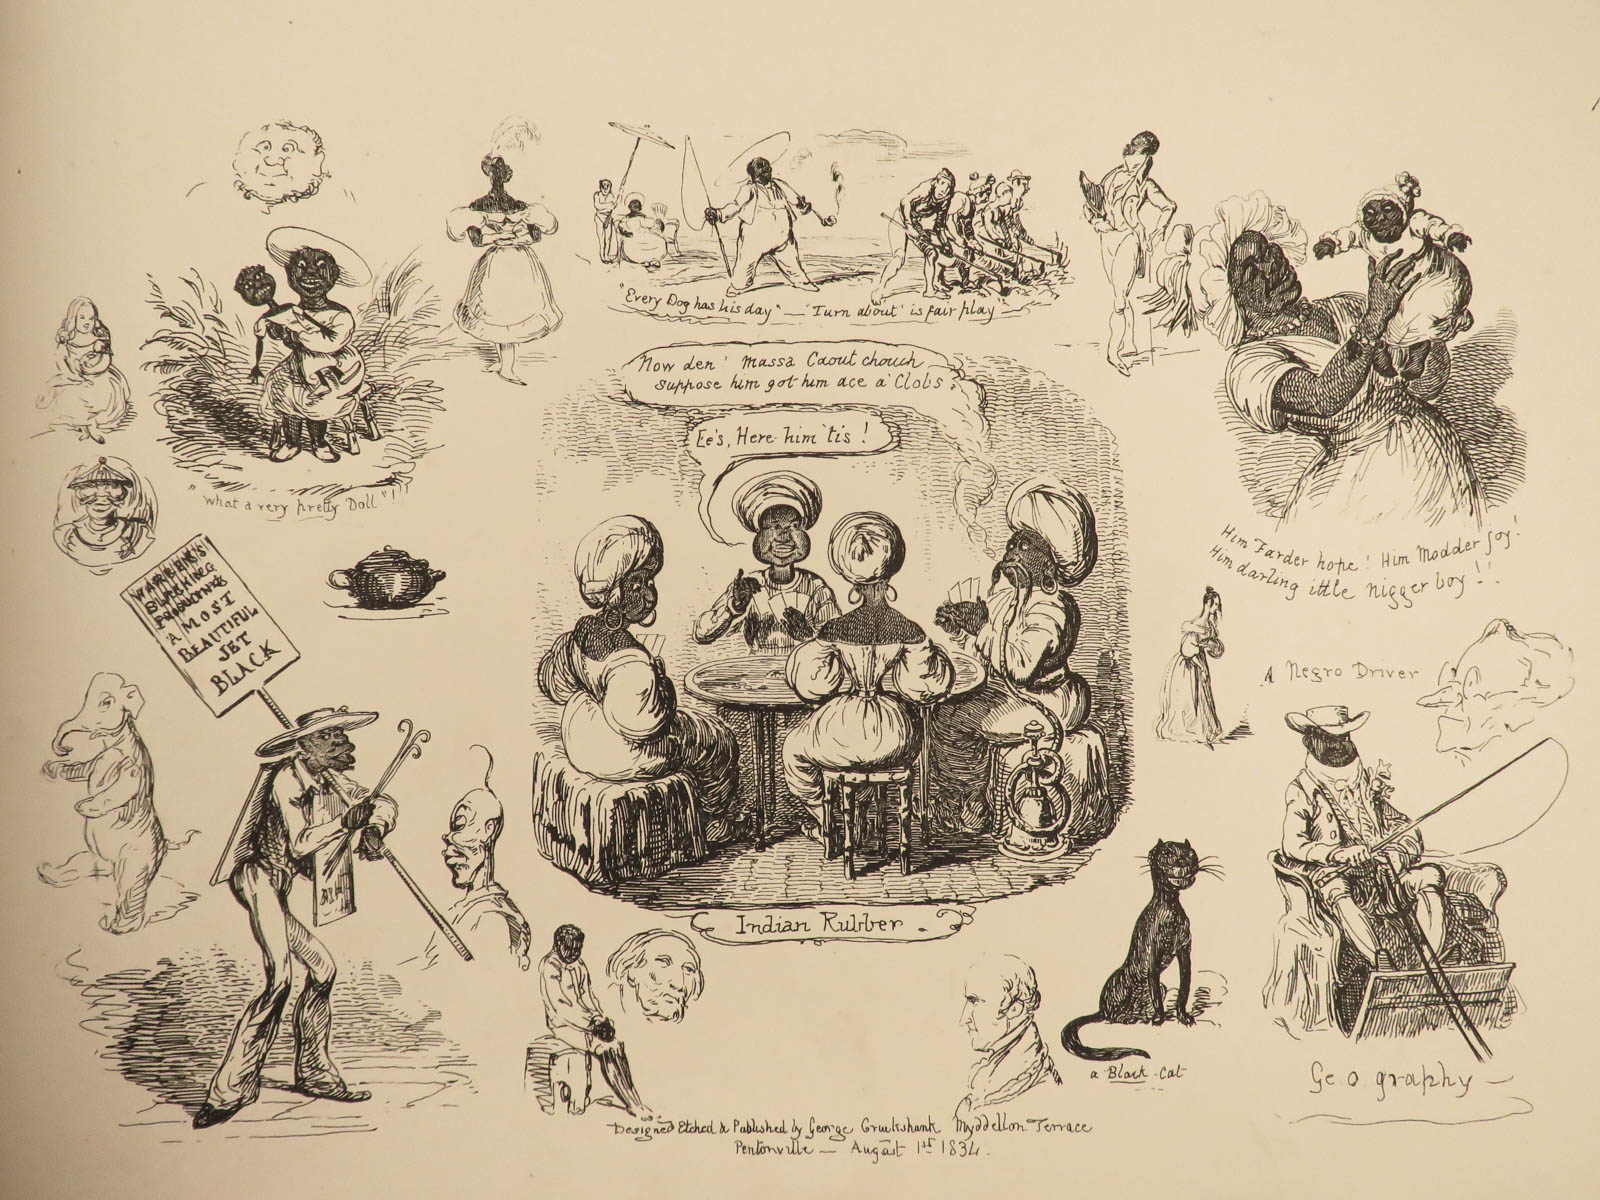 "Every Dog has his day" — "Turn about' is fair play
Now den! Massa Caoutchouch
suppose him got him ace a' Clobs.
Ee's, Here him 'tis!
"what a very pretty Doll"!!
Him Farder hope! Him Modder joy!
Him darling ittle nigger boy!!
WARREN'S'
BLACKING
'A MOST
BEAUTIFUL
JET
BLACK
A Negro Driver
Indian Rubber.
a Black-Cat
Ge.o.graphy —
Designed Etched & Published by George Cruikshank Myddellon Terrace
Pentonville — August 1st 1834.